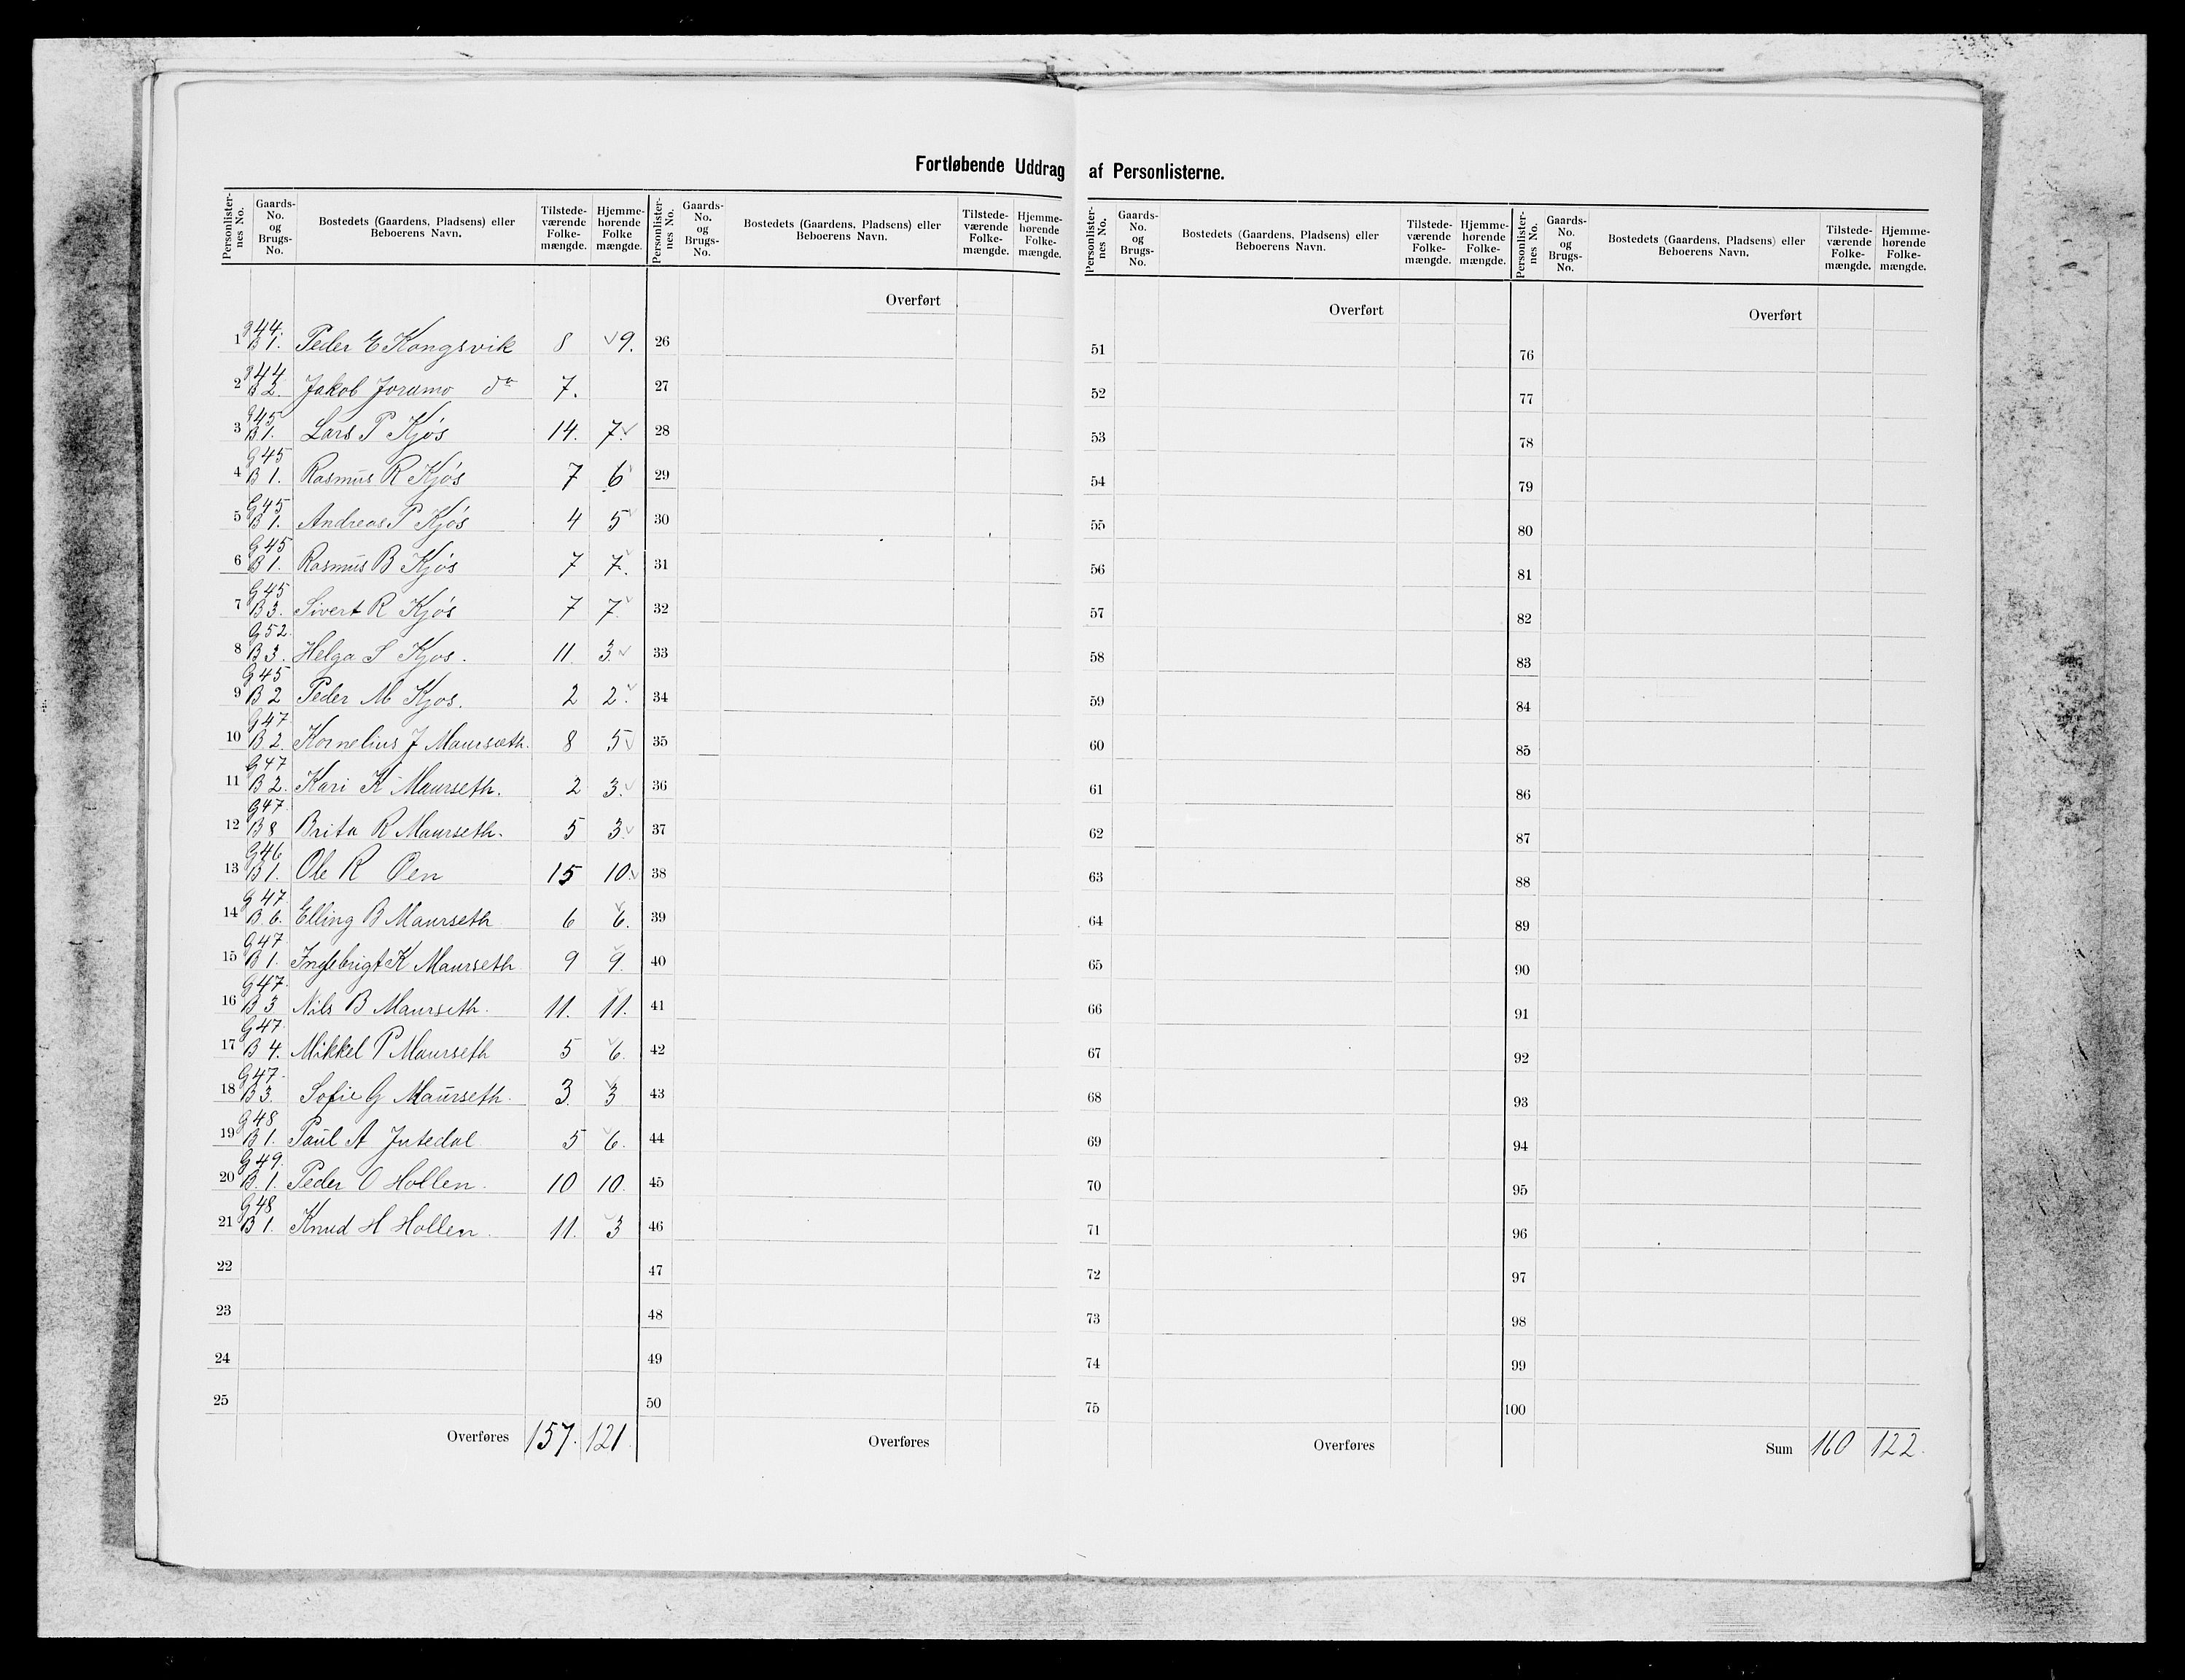 Fortløbende Uddrag af Personlisterne.
Personlister-nes No. Gaards-No. og Brugs-No. Bostedets (Gaardens, Pladsens) eller Beboerens Navn. Tilstede-værende Folke-mængde. Hjemme-hørende Folke mængde.
1 G 44. B 1. Peder E Kongsvik 8 9.
2 G 44 B 2. Jakob Joramo do 7.
3 G 45 B 1. Lars P Kjós 14. 7.
4 G 45 B 1. Rasmus R Kjós 7 6
5 G 45 B 1. Andreas P Kjós 4 5
6 G 45 B 1. Rasmus B Kjós 7 7.
7 G 45 B 3. Sivert R Kjós 7 7.
8 G 52. B 3. Helga S Kjos. 11. 3.
9 G 45 B 2 Peder M Kjos. 2 2.
10 G 47 B. 2. Kornelius J Maurseth. 8 5
11 G 47 B 2. Kari K Maurseth. 2 3.
12 G 47. B 8 Brita R Maurseth. 5 3.
13 G 46 B 1. Ole R Øen 15 10.
14 G 47. B. 6. Elling B Maurseth 6 6.
15 G 47 B 1. Ingebrigt K Maurseth. 9 9.
16 G 47. B 3 Nils B Maurseth. 11. 11.
17 G 47. B 4. Mikkel P Maurseth 5 6.
18 G 47. B 3. Sofie G Maurseth. 3. 3
19 G 48 B 1. Paul A Jutedal. 5 6.
20 G 49. B. 1. Peder O Hollen. 10 10.
21 G 48 B 1. Knud H Hollen. 11. 3
22
23
24
25
Overføres 157. 121.
Personlister-nes No. Gaards-No. og Brugs-No. Bostedets (Gaardens, Pladsens) eller Beboerens Navn. Tilstede-værende Folke-mængde. Hjemme-hørende Folke-mængde.
Overført
26
27
28
29
30
31
32
33
34
35
36
37
38
39
40
41
42
43
44
45
46
47
48
49
50
Overføres
Personlister-nes No. Gaards-No. og Brugs-No. Bostedets (Gaardens, Pladsens) eller Beboerens Navn. Tilstede-værende Folke-mængde. Hjemme-hørende Folke-mængde.
Overført
51
52
53
54
55
56
57
58
59
60
61
62
63
64
65
66
67
68
69
70
71
72
73
74
75
Overføres
Personlister-nes No. Gaards-No. og Brugs-No. Bostedets (Gaardens, Pladsens) eller Beboerens Navn. Tilstede-værende Folke-mængde. Hjemme-hørende Folke-mængde.
Overført
76
77
78
79
80
81
82
83
84
85
86
87
88
89
90
91
92
93
94
95
96
97
98
99
100
Sum 160 122.